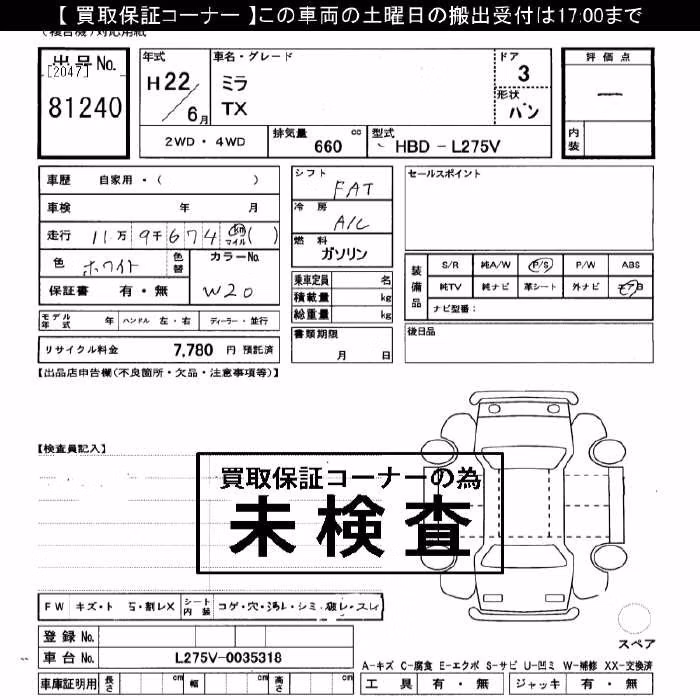 【 買取保証コーナー 】この車両の土曜日の搬出受付は17:00まで
出品No.
[2047]
81240
年式
H22
6月
車名・グレード
ミラ
TX
ドア
3
形状
バン
評価点
―
内装
2WD ・ 4WD
排気量 cc
660
型式
HBD - L275V
車歴 自家用・( )
車検 年 月
走行 11万 9千 674 km マイル ( )
色 ホワイト
色替
カラーNo.
W20
保証書 有・無
モデル年式 年 ハンドル 左・右 ディーラー・並行
リサイクル料金 7,780 円 預託済
シフト
FAT
冷房
A/C
燃料
ガソリン
乗車定員 名
積載量 kg
総重量 kg
書類期限
月 日
セールスポイント
装備品
S/R 純A/W P/S P/W ABS
純TV 純ナビ 革シート 外ナビ
ナビ型番:
後日品
【出品店申告欄(不良箇所・欠品・注意事項等)】
【検査員記入】
買取保証コーナーの為
未検査
FW キズ・ト 石・割レX
シート内装 コゲ・穴・汚レ・シミ・破レ・スレ
登録No.
車台No. L275V-0035318
車庫証明用 長さ cm 幅 cm 高さ cm
スペア
A-キズ C-腐食 E-エクボ S-サビ U-凹ミ W-補修 XX-交換済
工具 有・無 ジャッキ 有・無